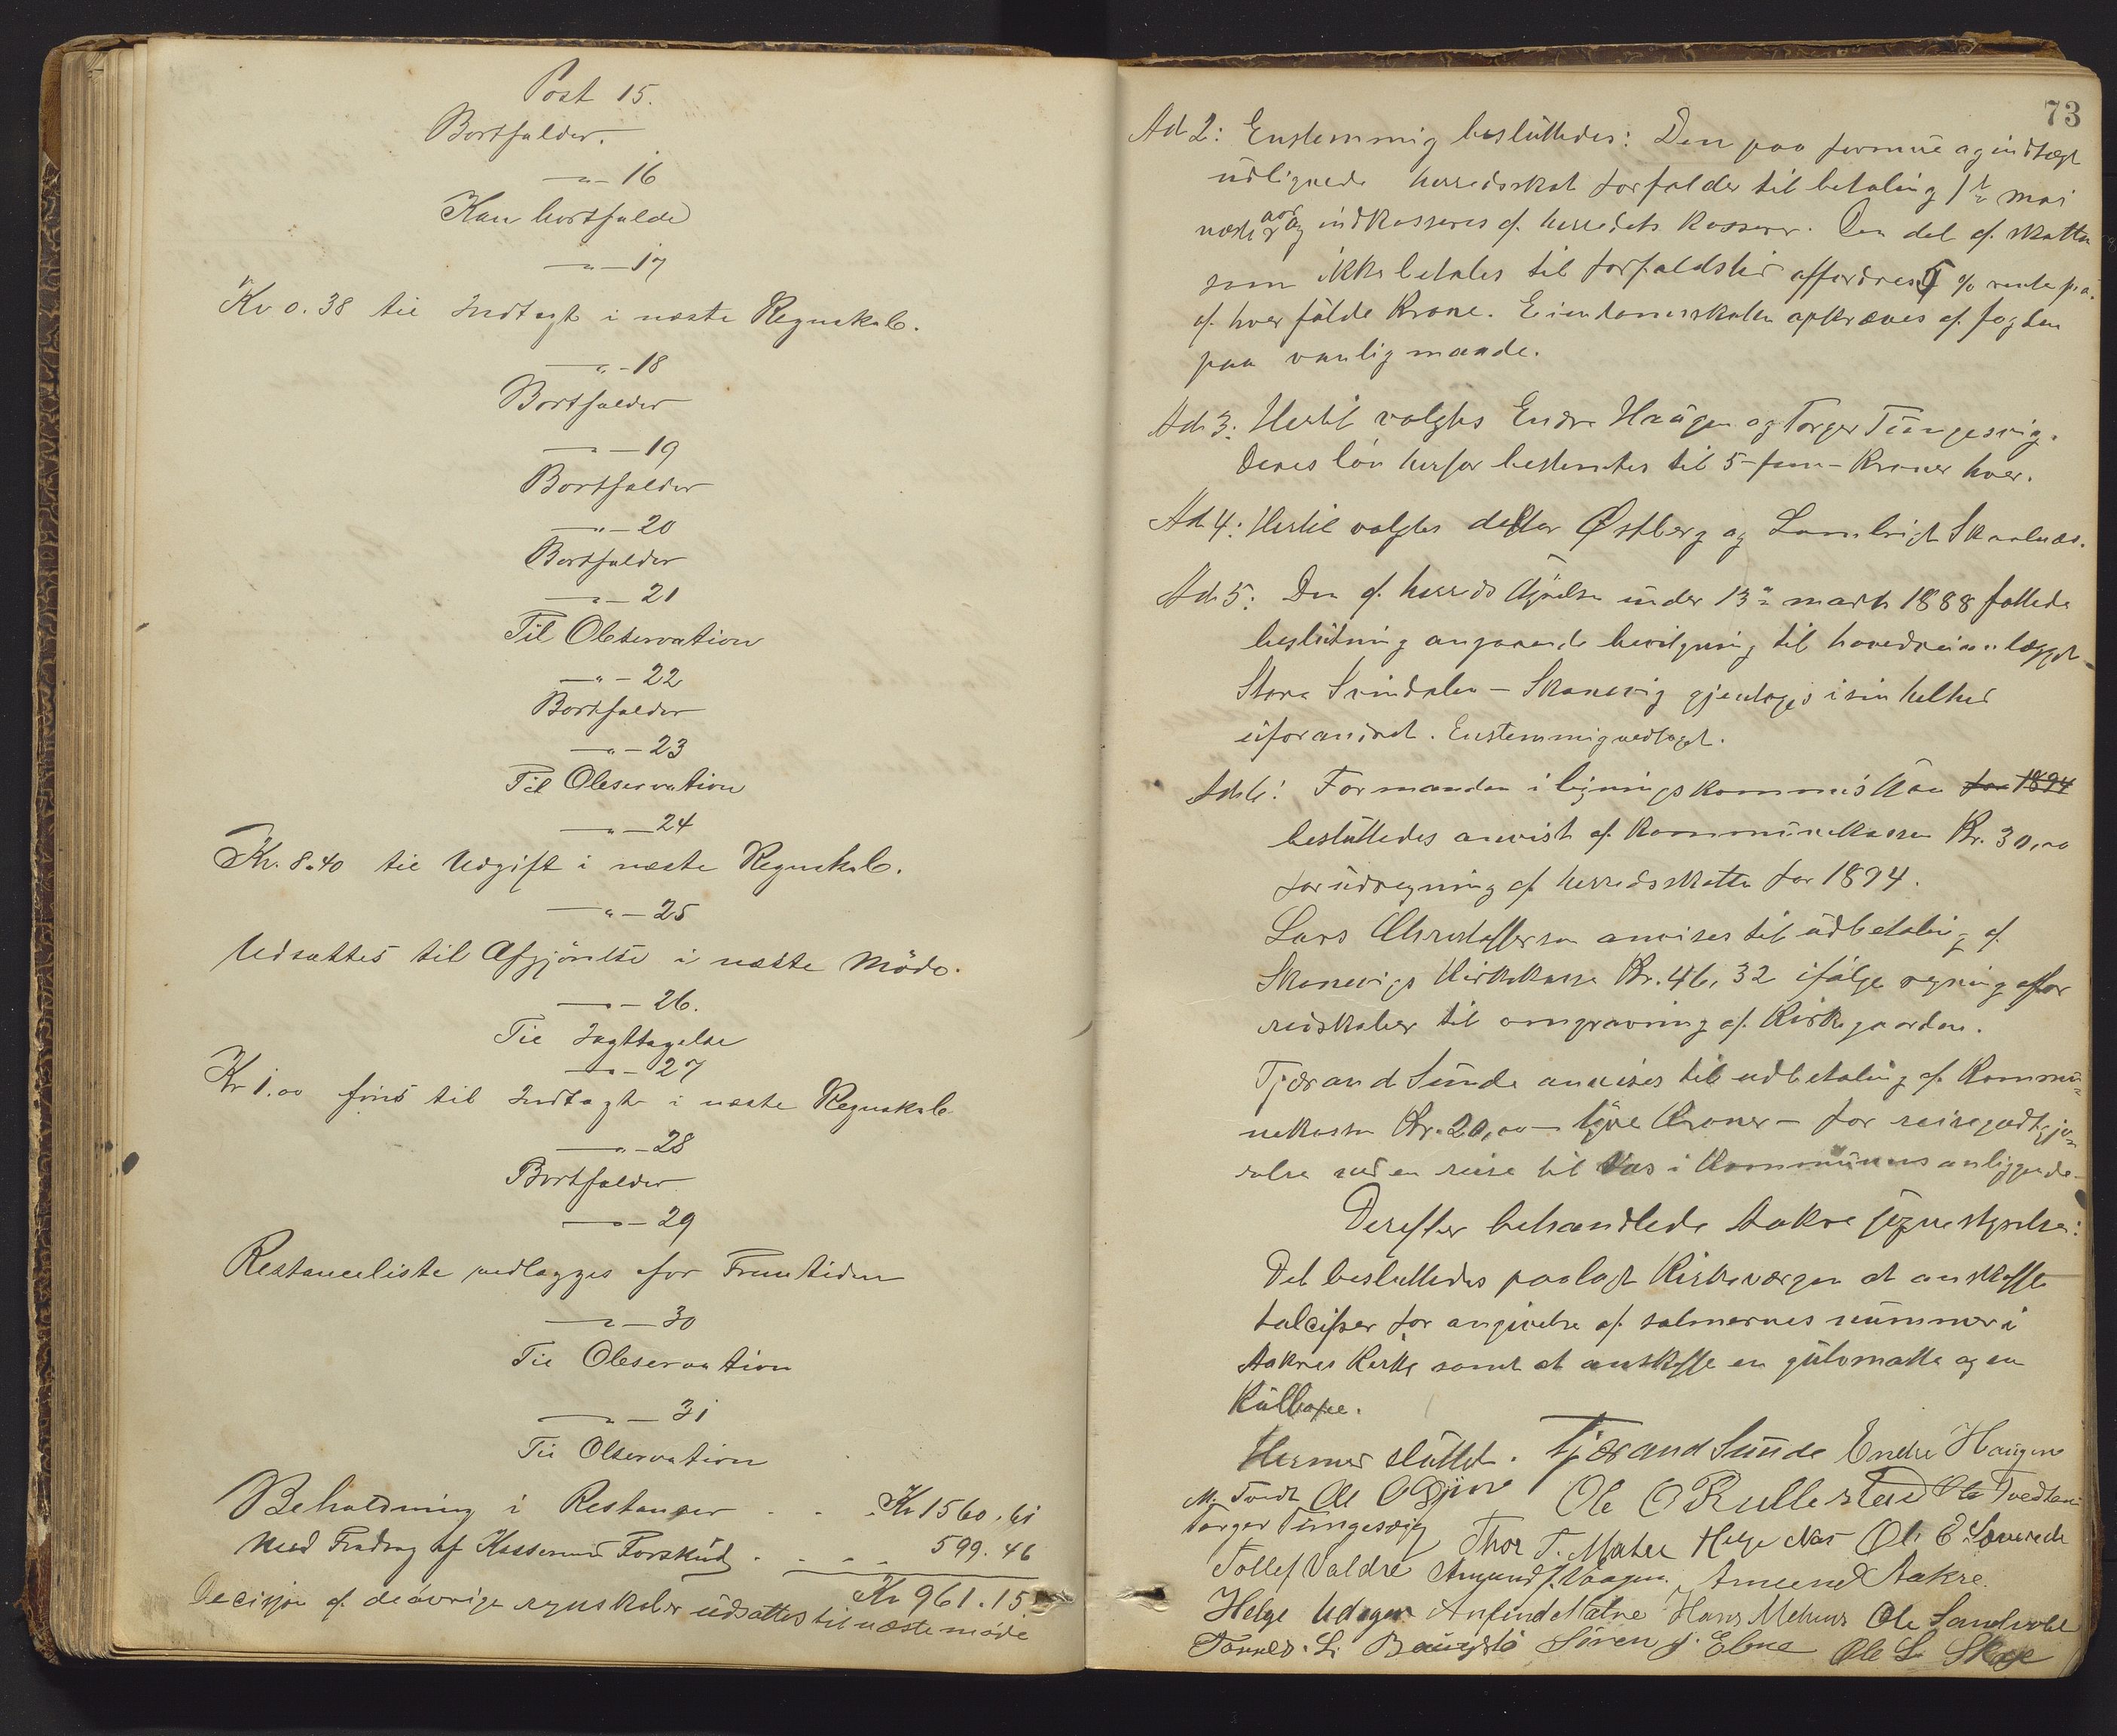 Post 15.
Bortfalder.
— " — 16
Kan bortfalde
— " — 17
Kr 0.38 til Indtægt i næste Regnskab.
— " — 18
Bortfalder
— " — 19
Bortfalder
— " — 20
Bortfalder
— " — 21
Til Observation
— " — 22
Bortfalder
— " — 23
Til Observation
— " — 24
Kr. 8.40 til Udgift i næste Regnskab.
— " — 25
Udsættes til Afgjörelse i næste Möde.
— " — 26.
Til Iagttagelse
— " — 27
Kr 1.00 föres til Indtægt i næste Regnskab
— " — 28
Bortfalder
— " — 29
Restanceliste vedlægges for Fremtiden
— " — 30
Til Observation
— " — 31
Til Observation
Beholdning i Restanser . . . Kr 1560.61
Med Fradrag af Kassererens Forskud . . . . 599.46
Kr 961.15
Decisjon af de övrige regnskaber udsættes til næste möde
73
Ad 2: Enstemmig besluttedes: Den paa formue og indtægt
udlignede herredsskat forfalder til betaling 1ste mai
næste aar og indkasseres af herredets kasserer. Den del af skatten
som ikke betales til forfaldstid affordres 5 % rente p.a.
af hver fulde Krone. Eiendomsskatten opkræves af fogden
paa vanlig maade.
Ad 3: Hertil valgtes Endre Haugen og Torger Tungesvig.
Deres lön herfor bestemtes til 5 - fem - Kroner hver.
Ad 4: Hertil valgtes doktor Østberg og Lambrigt Skaalnæs.
Ad 5: Den af herredsstyrelsen under 13de marts 1888 fattede
beslutning angaaende bevilgning til hovedveianlægget
Store Svindalen - Skonevig gjentages i sin helhed
uforandret. Enstemmig vedtaget.
Ad 6: Formanden i ligningskommissionen for 1894
besluttedes anvist af kommunekassen Kr. 30,00
for udregning af herredsskatten for 1894.
Lars Christoffersen anvises til udbetaling af
Skonevigs Kirkekasse Kr. 46,32 ifölge regning for
redskaber til omgravning af Kirkegaarden.
Tjærand Sunde anvises til udbetaling af Kommu-
nekassen Kr. 20,00 - tyve Kroner - for reisegodtgjö-
relse ved en reise til Vos i Kommunens anliggende
Derefter behandlede Aakre sognestyrelse:
Det besluttedes paalagt Kirkeværgen at anskaffe
talcifrer for angivelse af salmernes nummer i
Aakres Kirke samt at anskaffe en gulvmatte og en
Kulboxe.
Hermed sluttet. Tjærand Sunde Endre Haugen
M. Tvedt Ole O Rullestad Ola Tvedten
Torger Tungesvig Thor T. Matre Helge Næs Ole E
Tollef Valdre Amund J. Vaagen Amund Aakre.
Helge Udager Anfind Matre Hans Mehus Ole Sandvold
Tørres. L. Baugstö Sören J. Elne Ole L. Skaje